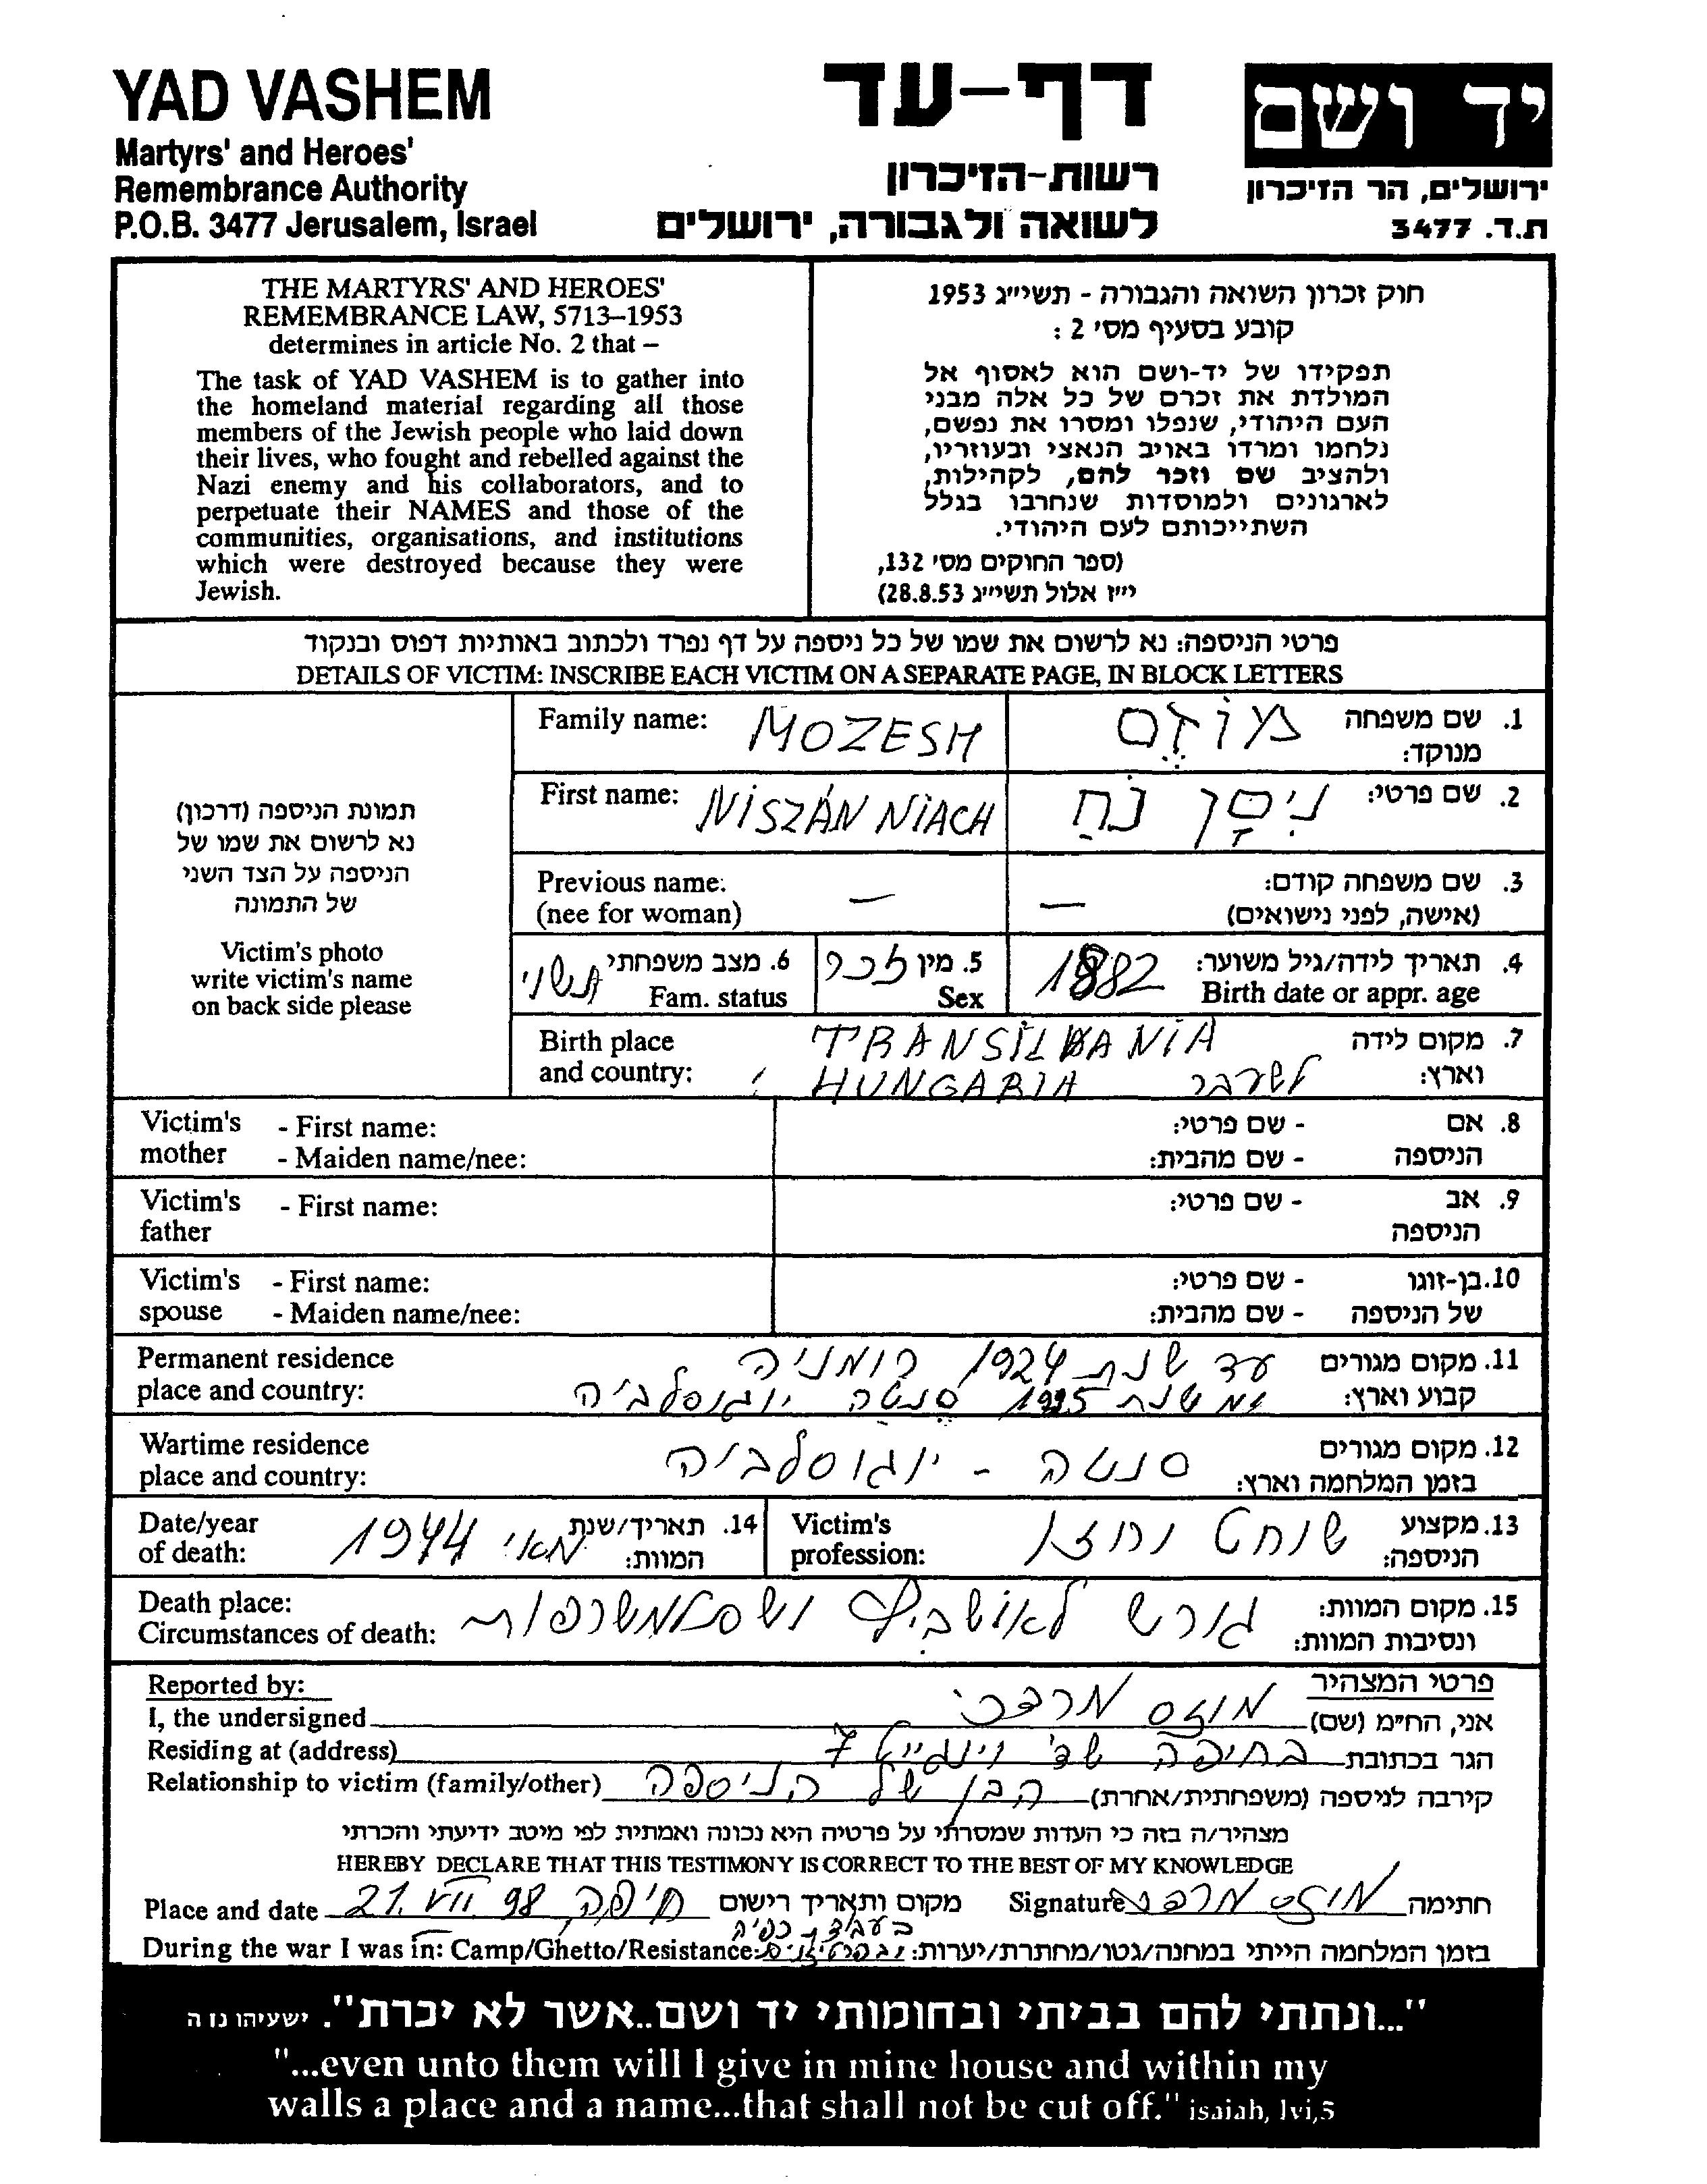 YAD VASHEM
Martyrs' and Heroes'
Remembrance Authority
P.O.B. 3477 Jerusalem, Israel
דף-עד
רשות-הזיכרון
לשואה ולגבורה, ירושלים
יד ושם
ירושלים, הר הזיכרון
ת.ד. 3477
THE MARTYRS' AND HEROES'
REMEMBRANCE LAW, 5713–1953
determines in article No. 2 that –
The task of YAD VASHEM is to gather into
the homeland material regarding all those
members of the Jewish people who laid down
their lives, who fought and rebelled against the
Nazi enemy and his collaborators, and to
perpetuate their NAMES and those of the
communities, organisations, and institutions
which were destroyed because they were
Jewish.
חוק זכרון השואה והגבורה - תשי״ג 1953
קובע בסעיף מס' 2 :
תפקידו של יד-ושם הוא לאסוף אל
המולדת את זכרם של כל אלה מבני
העם היהודי, שנפלו ומסרו את נפשם,
נלחמו ומרדו באויב הנאצי ובעוזריו,
ולהציב שם וזכר להם, לקהילות,
לארגונים ולמוסדות שנחרבו בגלל
השתייכותם לעם היהודי.
(ספר החוקים מס' 132,
י״ז אלול תשי״ג 28.8.53)
פרטי הניספה: נא לרשום את שמו של כל ניספה על דף נפרד ולכתוב באותיות דפוס ובנקוד
DETAILS OF VICTIM: INSCRIBE EACH VICTIM ON A SEPARATE PAGE, IN BLOCK LETTERS
תמונת הניספה (דרכון)
נא לרשום את שמו של
הניספה על הצד השני
של התמונה
Victim's photo
write victim's name
on back side please
Family name: MOZESH מוֹזֶס 1. שם משפחה
מנוקד:
First name: NISZÁN NIACH נִיסָן נֹחַ 2. שם פרטי:
Previous name: — — 3. שם משפחה קודם:
(nee for woman) (אישה, לפני נישואים)
6. מצב משפחתי נשוי 5. מין זכר 1882 4. תאריך לידה/גיל משוער:
Fam. status Sex Birth date or appr. age
Birth place TRANSILVANIA 7. מקום לידה
and country: HUNGARIA לשעבר וארץ:
Victim's - First name: - שם פרטי: 8. אם
mother - Maiden name/nee: - שם מהבית: הניספה
Victim's - First name: - שם פרטי: 9. אב
father הניספה
Victim's - First name: - שם פרטי: 10. בן-זוגו
spouse - Maiden name/nee: - שם מהבית: של הניספה
Permanent residence עד שנת 1924 רומניה 11. מקום מגורים
place and country: ומשנת 1925 סנטה יוגוסלביה קבוע וארץ:
Wartime residence סנטה - יוגוסלביה 12. מקום מגורים
place and country: בזמן המלחמה וארץ:
Date/year מאי 1944 14. תאריך/שנת Victim's שוחט וחזן 13. מקצוע
of death: המוות: profession: הניספה:
Death place: גורש לאושביץ 15. מקום המוות:
Circumstances of death: ונסיבות המוות:
Reported by: פרטי המצהיר
I, the undersigned מוזס מרדכי אני, הח״מ (שם)
Residing at (address) בחיפה שד' וינגייט 7 הגר בכתובת
Relationship to victim (family/other) הבן של הניספה קירבה לניספה (משפחתית/אחרת)
מצהיר/ה בזה כי העדות שמסרתי על פרטיה היא נכונה ואמתית לפי מיטב ידיעתי והכרתי
HEREBY DECLARE THAT THIS TESTIMONY IS CORRECT TO THE BEST OF MY KNOWLEDGE
Place and date 21. VII 98 חיפה מקום ותאריך רישום Signature מוזס מרדכי חתימה
בעבודת כפיה
During the war I was in: Camp/Ghetto/Resistance: ובפרטיזנים בזמן המלחמה הייתי במחנה/גטו/מחתרת/יערות:
"...ונתתי להם בביתי ובחומותי יד ושם..אשר לא יכרת". ישעיהו נו ה
"...even unto them will I give in mine house and within my
walls a place and a name...that shall not be cut off." isaiah, lvi,5